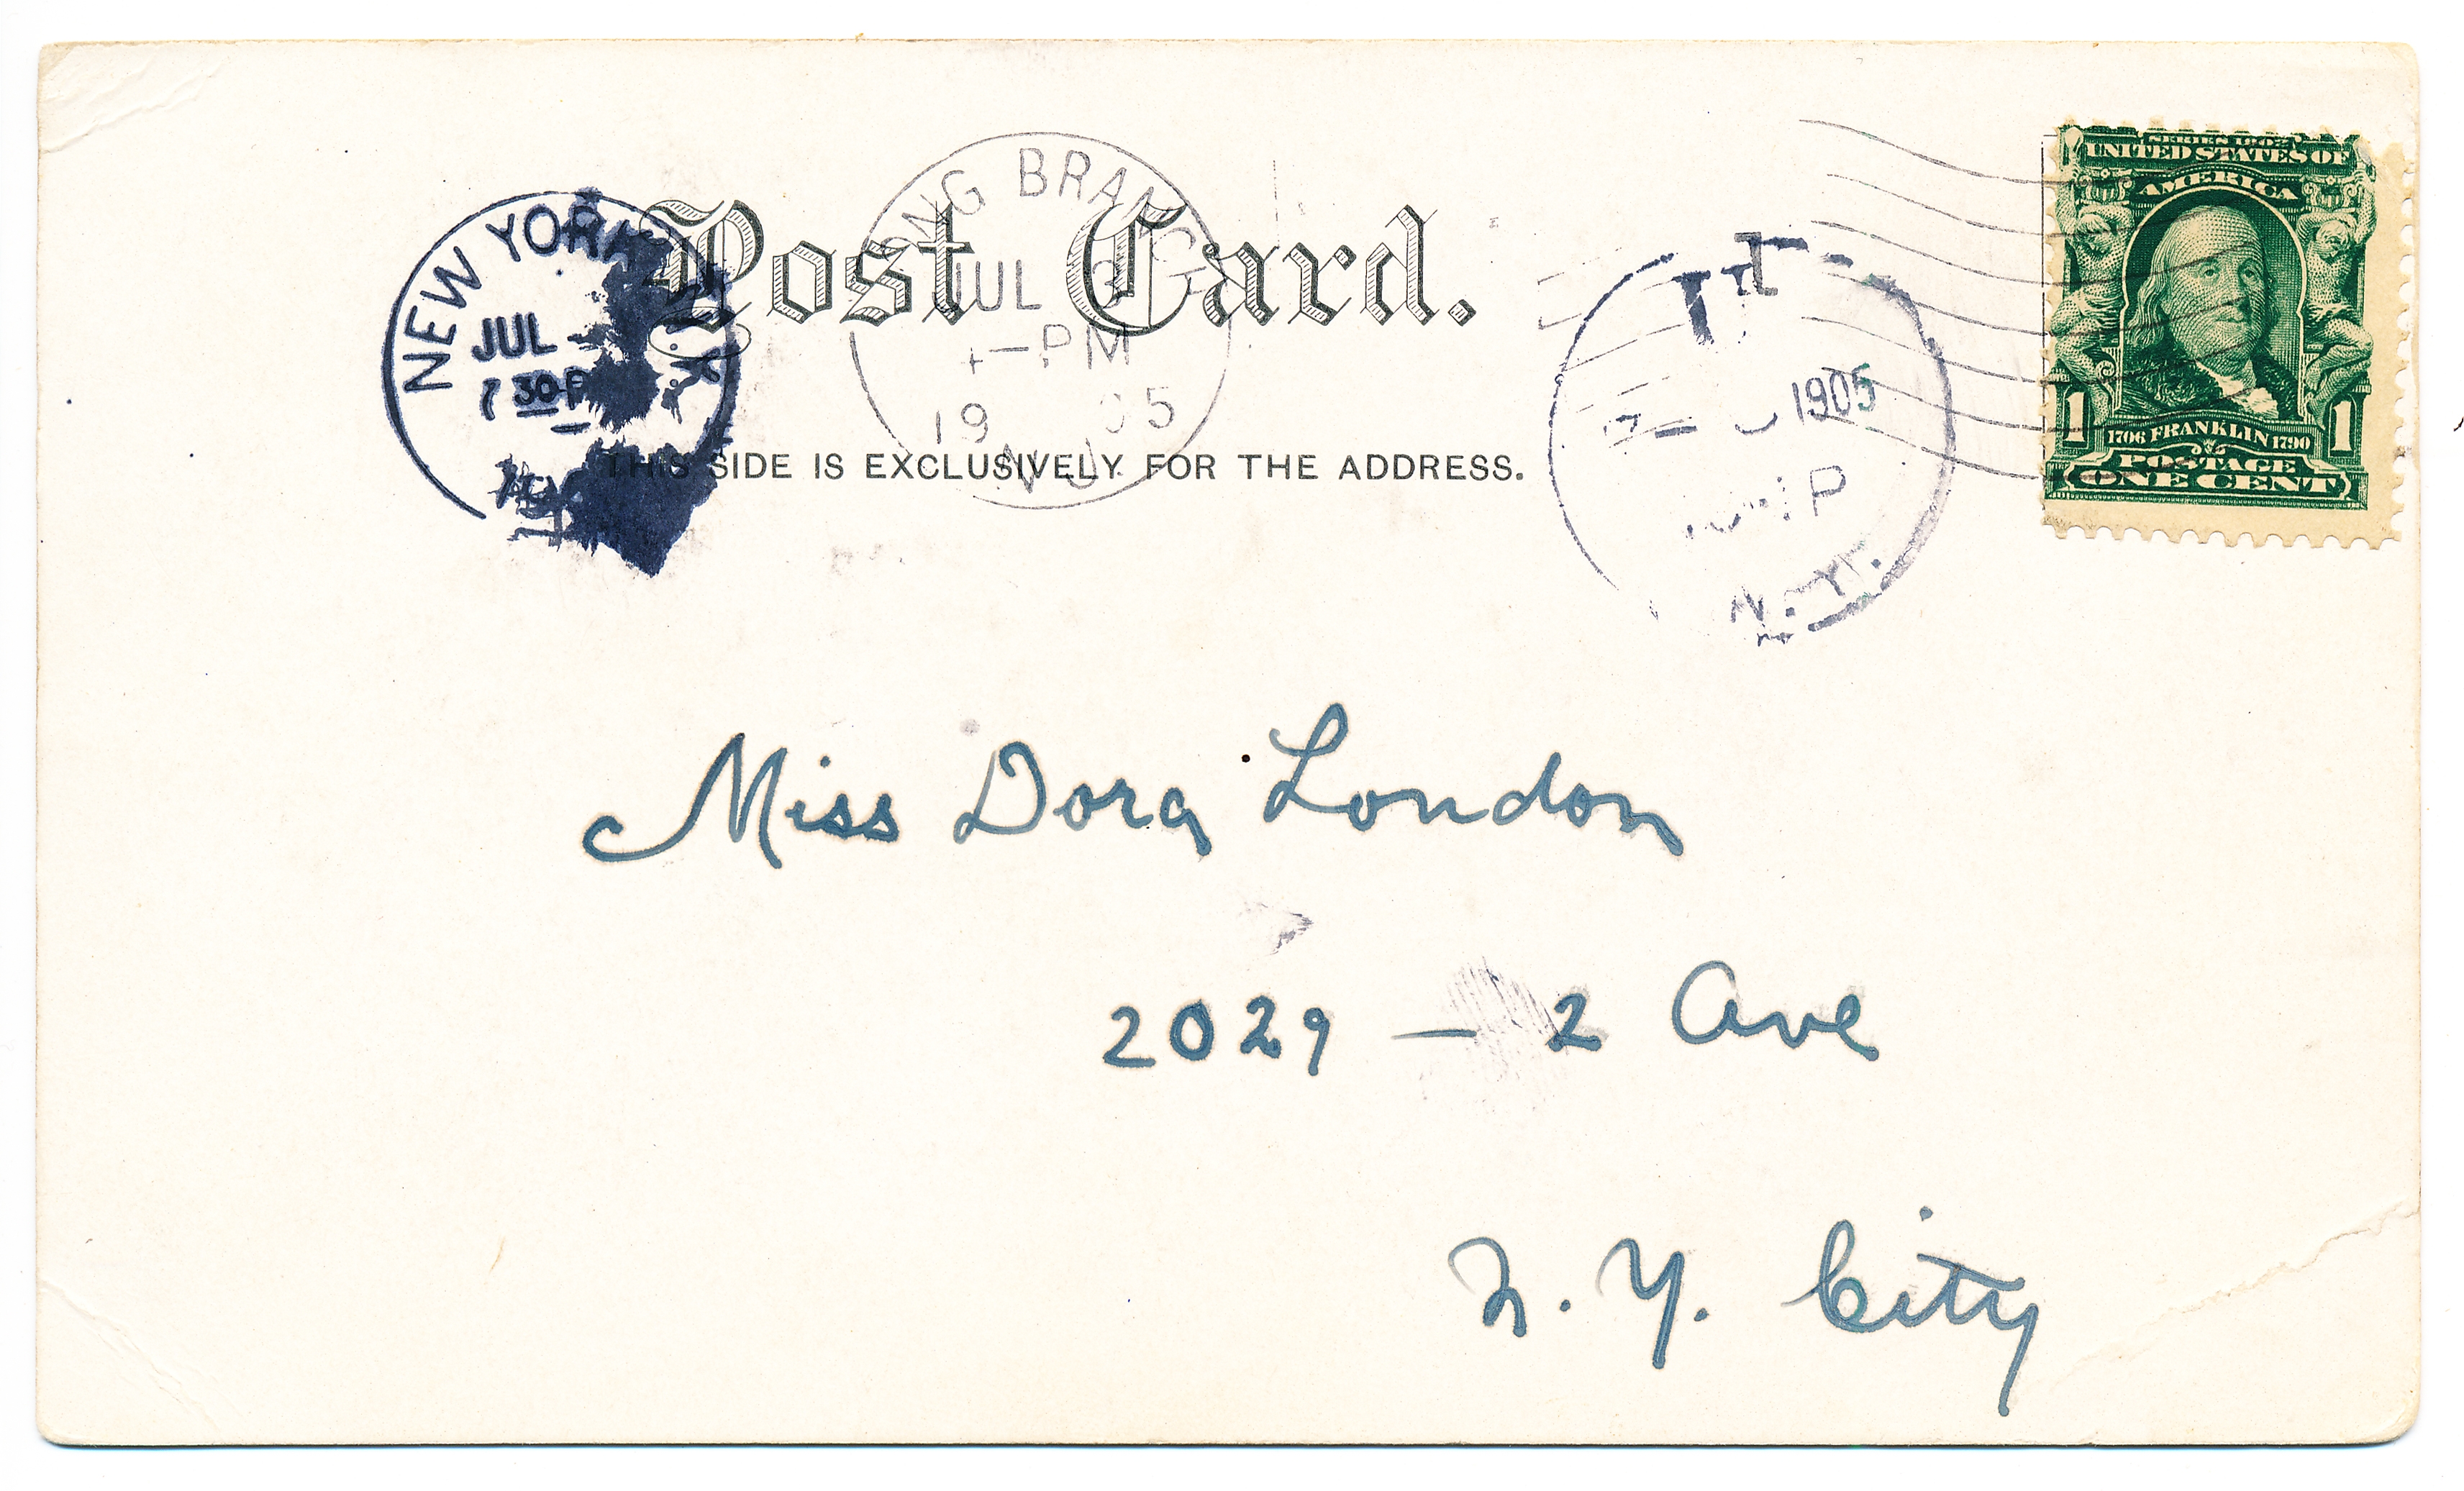 Post Card.
THIS SIDE IS EXCLUSIVELY FOR THE ADDRESS.
NEW YORK N.Y.
JUL
7 30 P
BRANCH
JUL
PM
19 05
N.J.
1905
P
N.Y.
SERIES 1902
UNITED STATES OF
AMERICA
1 1706 FRANKLIN 1790 1
POSTAGE
ONE CENT
Miss Dora London
2029 — 2 Ave
N. Y. City